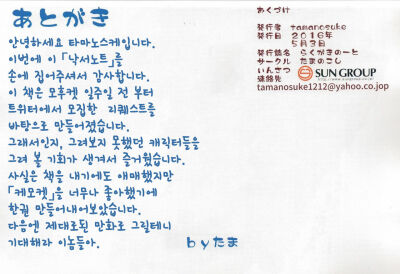 あとがき
안녕하세요 타마노스케입니다.
이번에 이 「낙서노트」를
손에 집어주셔서 감사합니다.
이 책은 모후켓 일주일 전 부터
트위터에서 모집한 리퀘스트를
바탕으로 만들어졌습니다.
그래서인지, 그려보지 못했던 캐릭터들을
그려 볼 기회가 생겨서 즐거웠습니다.
사실은 책을 내기에도 애매했지만
「케모켓」을 너무나 좋아했기에
한권 만들어내어보았습니다.
다음에 제대로된 만화로 그릴테니
기대해라 이놈들아.
byたま
おくづけ
発行者 tamanosuke
発行日 2016年
5月3日
発行誌名 らくがきのーと
サークル たまのこし
いんさつ SUN GROUP
連絡先
tamanosuke1212@yahoo.co.jp